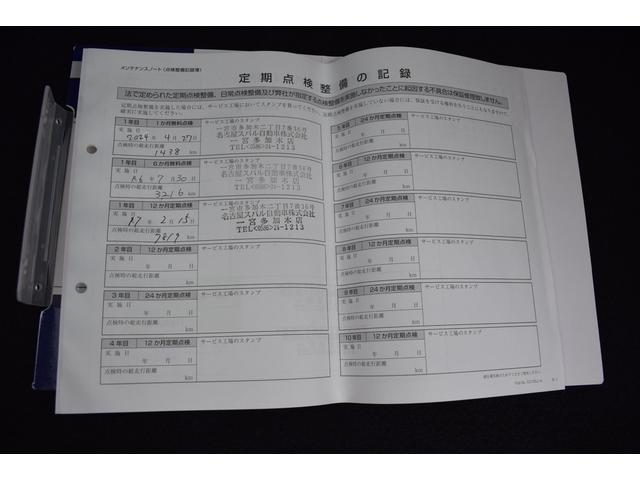 メンテナンスノート(点検整備記録簿)
定期点検整備の記録
法で定められた定期点検整備、日常点検整備及び弊社が指定する点検整備を実施しなかったことに起因する不具合は保証修理致しません。
1年目 1か月無料点検
サービス工場のスタンプ
実施日
2024年4月27日
点検時の総走行距離
1438 km
一宮市多加木二丁目7番16号
名古屋スバル自動車株式会社
一宮多加木店
TEL<0586>24-1213
1年目 6か月無料点検
サービス工場のスタンプ
実施日
R6年7月30日
点検時の総走行距離
3216 km
一宮市多加木二丁目7番16号
名古屋スバル自動車株式会社
一宮多加木店
TEL<0586>24-1213
1年目 12か月定期点検
サービス工場のスタンプ
実施日
R7年2月15日
点検時の総走行距離
7819 km
一宮市多加木二丁目7番16号
名古屋スバル自動車株式会社
一宮多加木店
TEL<0586>24-1213
2年目 12か月定期点検
サービス工場のスタンプ
実施日
年 月 日
点検時の総走行距離
km
3年目 24か月定期点検
サービス工場のスタンプ
実施日
年 月 日
点検時の総走行距離
km
4年目 12か月定期点検
サービス工場のスタンプ
実施日
年 月 日
点検時の総走行距離
km
5年目 24か月定期点検
サービス工場のスタンプ
実施日
年 月 日
点検時の総走行距離
km
6年目 12か月定期点検
サービス工場のスタンプ
実施日
年 月 日
点検時の総走行距離
km
7年目 24か月定期点検
サービス工場のスタンプ
実施日
年 月 日
点検時の総走行距離
km
8年目 12か月定期点検
サービス工場のスタンプ
実施日
年 月 日
点検時の総走行距離
km
9年目 24か月定期点検
サービス工場のスタンプ
実施日
年 月 日
点検時の総走行距離
km
10年目 12か月定期点検
サービス工場のスタンプ
実施日
年 月 日
点検時の総走行距離
km